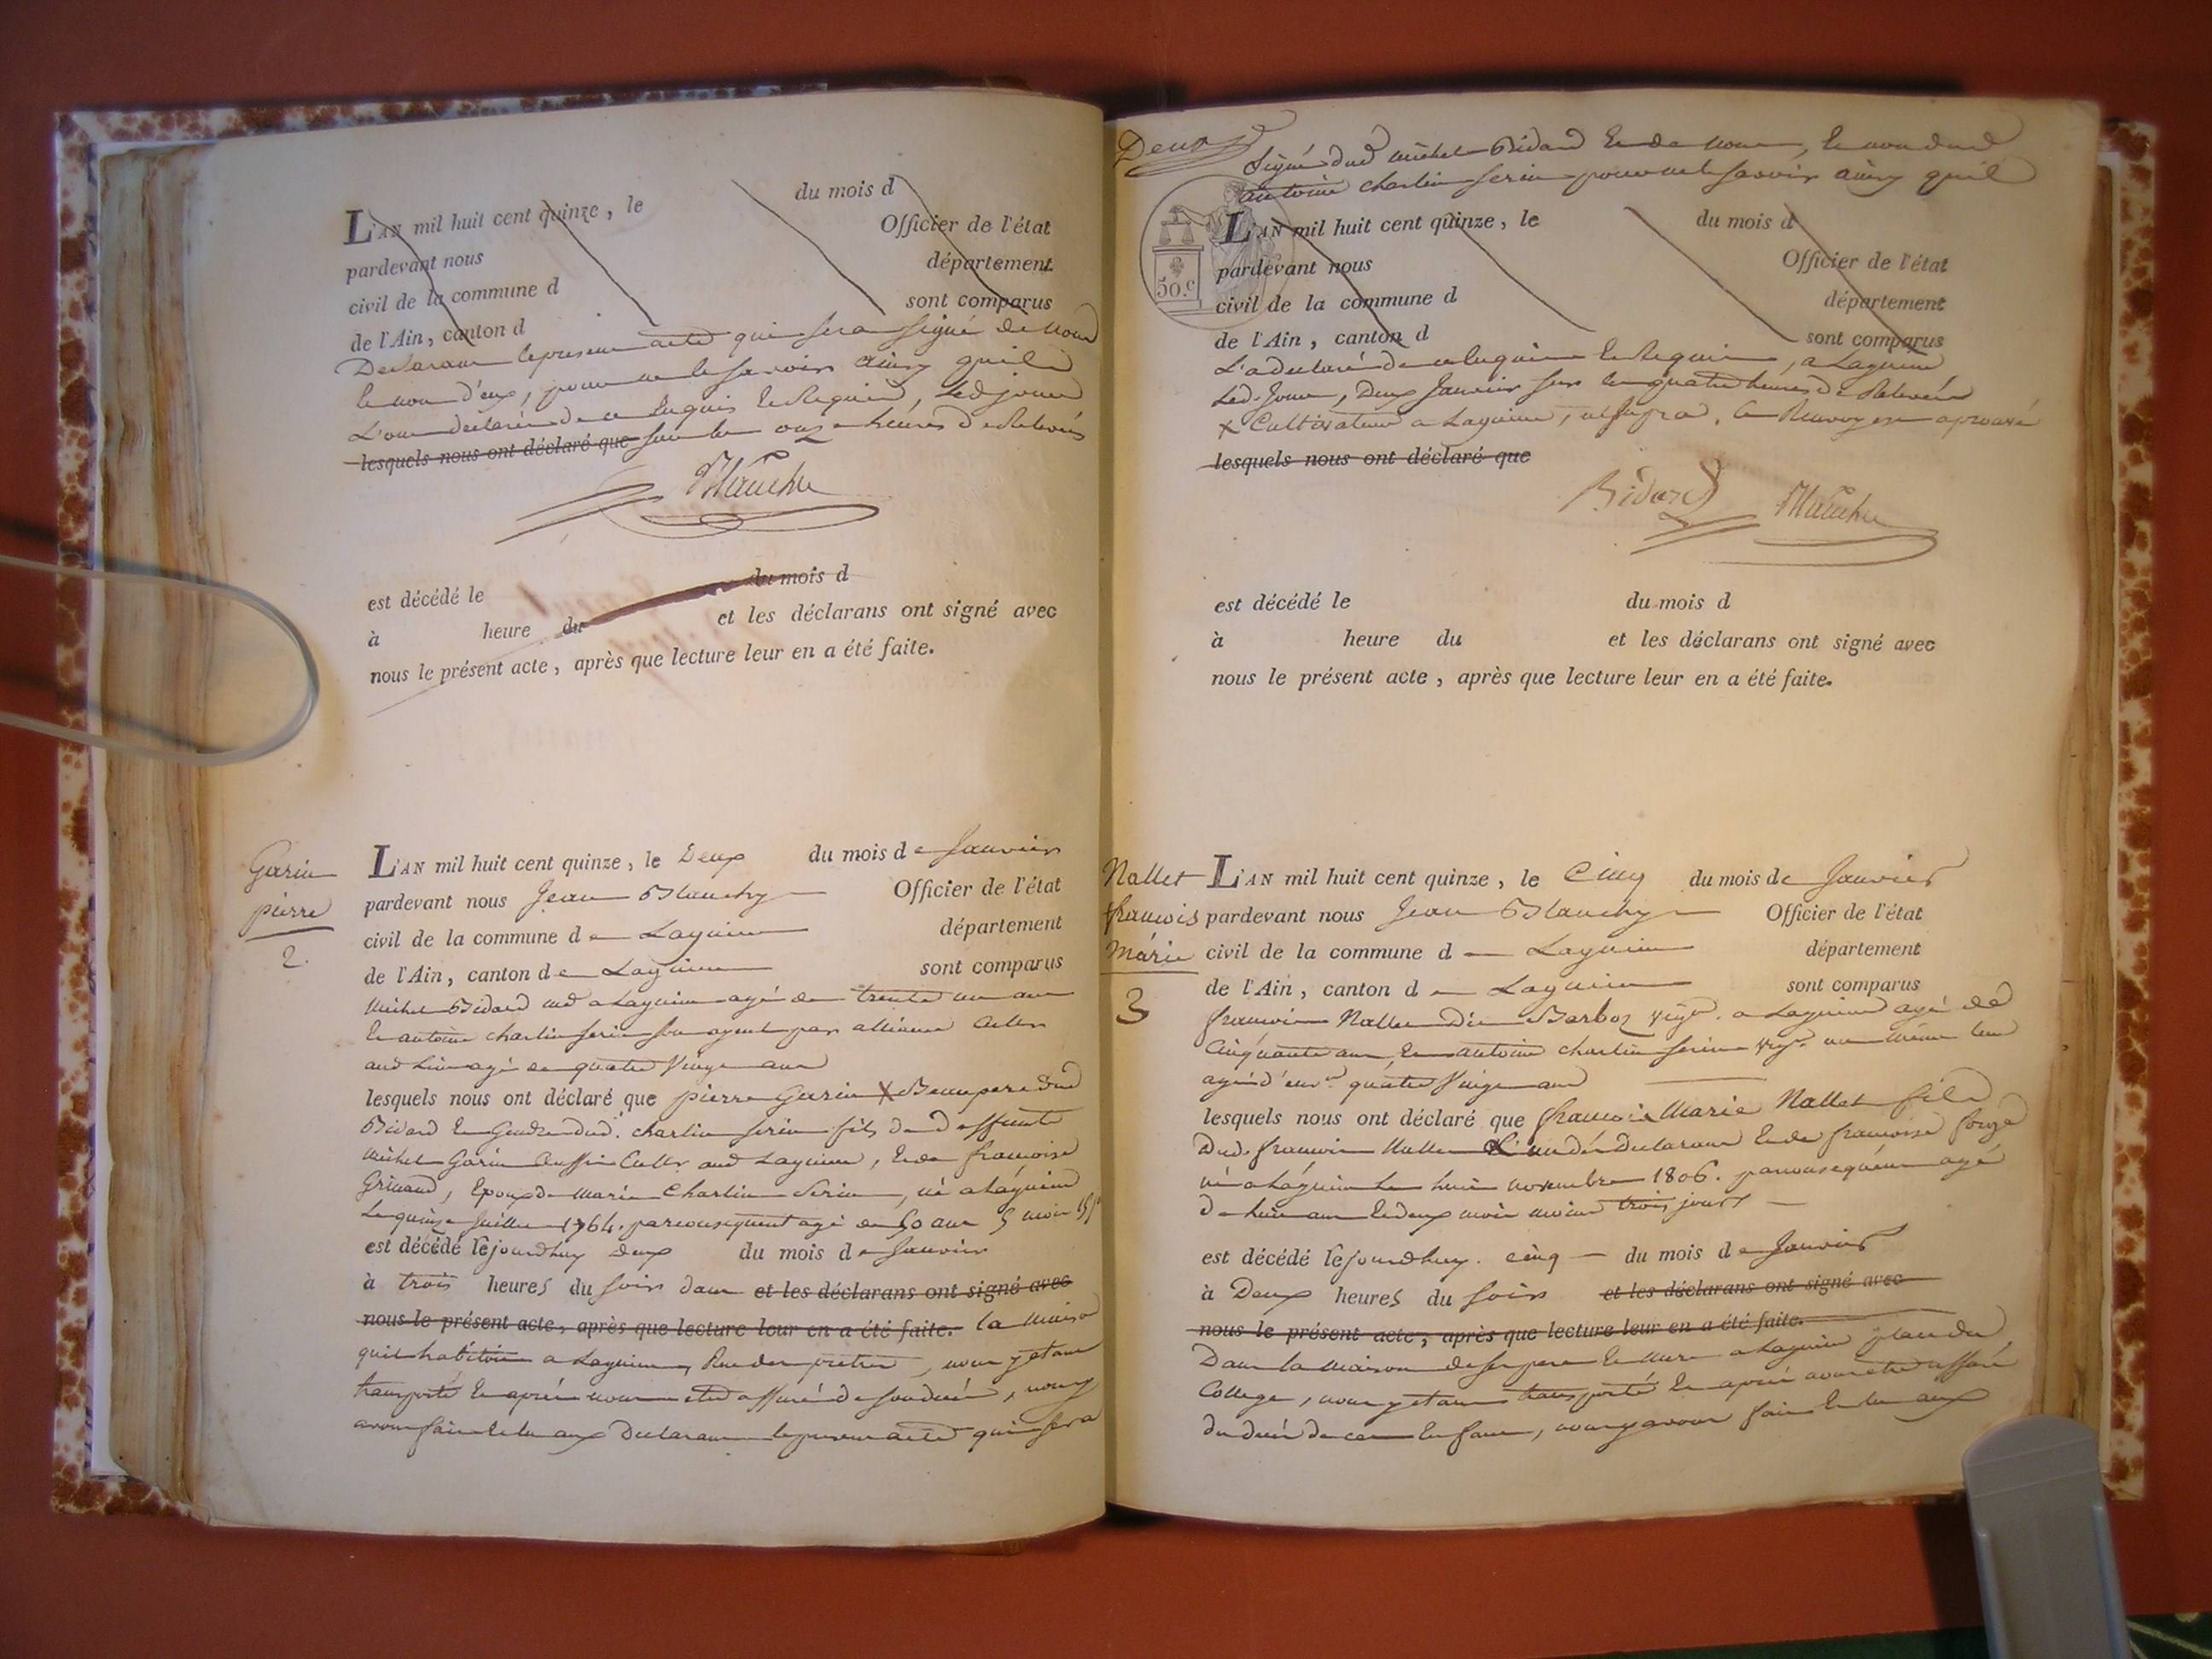 L'AN mil huit cent quinze, le du mois d
pardevant nous Officier de l'état
civil de la commune d département
de l'Ain, canton d sont comparus
Declarans le present acte qui sera signé de nous
le non d'eux, pour ne le savoir ainsy quils
L'ont declaré de ce Enquis et Requis, led jour
lesquels nous ont déclaré que sur les onze heures de Relevés
JBlanchy
est décédé le du mois d
à heure du et les déclarans ont signé avec
nous le présent acte, après que lecture leur en a été faite.
Garin
pierre
2.
L'AN mil huit cent quinze, le Deux du mois de Janvier
pardevant nous Jean Blanchy Officier de l'état
civil de la commune de Lagnieu département
de l'Ain, canton de Lagnieu sont comparus
Michel Bidard aud Lagnieu agé de trente un ans
Et antoine charlin serin son agent par alliance Cultr
aud Lieu agé de quatre Vingt ans
lesquels nous ont déclaré que pierre Garin X Beaupere dud
Bidard Et Gendre dud. charlin serin fils de deffunts
Michel Garin Aussi Cultr aud Lagnieu, Et de françoise
Grinand, Epoux de Marie Charlin Serin, né a Lagnieu
Le quinze Juillet 1764. par consequent agé de 50 ans 5 mois
est décédé le jourdhuy deux du mois de Janvier
à trois heures du soir dans et les déclarans ont signé avec
nous le présent acte, après que lecture leur en a été faite. la maison
quil habitoit a Lagnieu, Rue des pretres, nous y etant
transporté Et aprés nous etre assuré de son decés, nous y
avons fait Et lu aux Declarans le present acte qui sera
Deux
Signé dud Michel Bidard Et de nous, le non dud
antoine charlin serin pour ne le savoir ainsy quil
50.c
L'AN mil huit cent quinze, le du mois d
pardevant nous Officier de l'état
civil de la commune d département
de l'Ain, canton d sont comparus
L'a declaré de ce Enquis Et Requis, a Lagnieu
Led. Jour, Deux Janvier sur les quatre heures de Relevée
X Cultivateur a Lagnieu, ut supra, le Renvoy est aprouvé
lesquels nous ont déclaré que
Bidard JBlanchy
est décédé le du mois d
à heure du et les déclarans ont signé avec
nous le présent acte, après que lecture leur en a été faite.
Nallet
francois
Marie
3
L'AN mil huit cent quinze, le Cinq du mois de Janvier
pardevant nous Jean Blanchy Officier de l'état
civil de la commune d Lagnieu département
de l'Ain, canton d Lagnieu sont comparus
francois Nallet Dit Barboz vign. a Lagnieu agé de
Cinquante ans, Et antoine charlin serin vign. au même lieu
agé d'env. quatre Vingt ans
lesquels nous ont déclaré que francois Marie Nallet fils
Dud. francois Nallet L'un des Declarans Et de francoise
né a Lagnieu Le huit novembre 1806. par consequent agé
de huit ans Et deux mois moins trois jours
est décédé le jourdhuy. cinq du mois de Janvier
à Deux heures du soir et les déclarans ont signé avec
nous le présent acte, après que lecture leur en a été faite.
Dans la maison de ses pere Et mere a Lagnieu place du
College, nous y etant transporté Et aprés avoir été assuré
du decés de cet Enfant, nous y avons fait Et lu aux